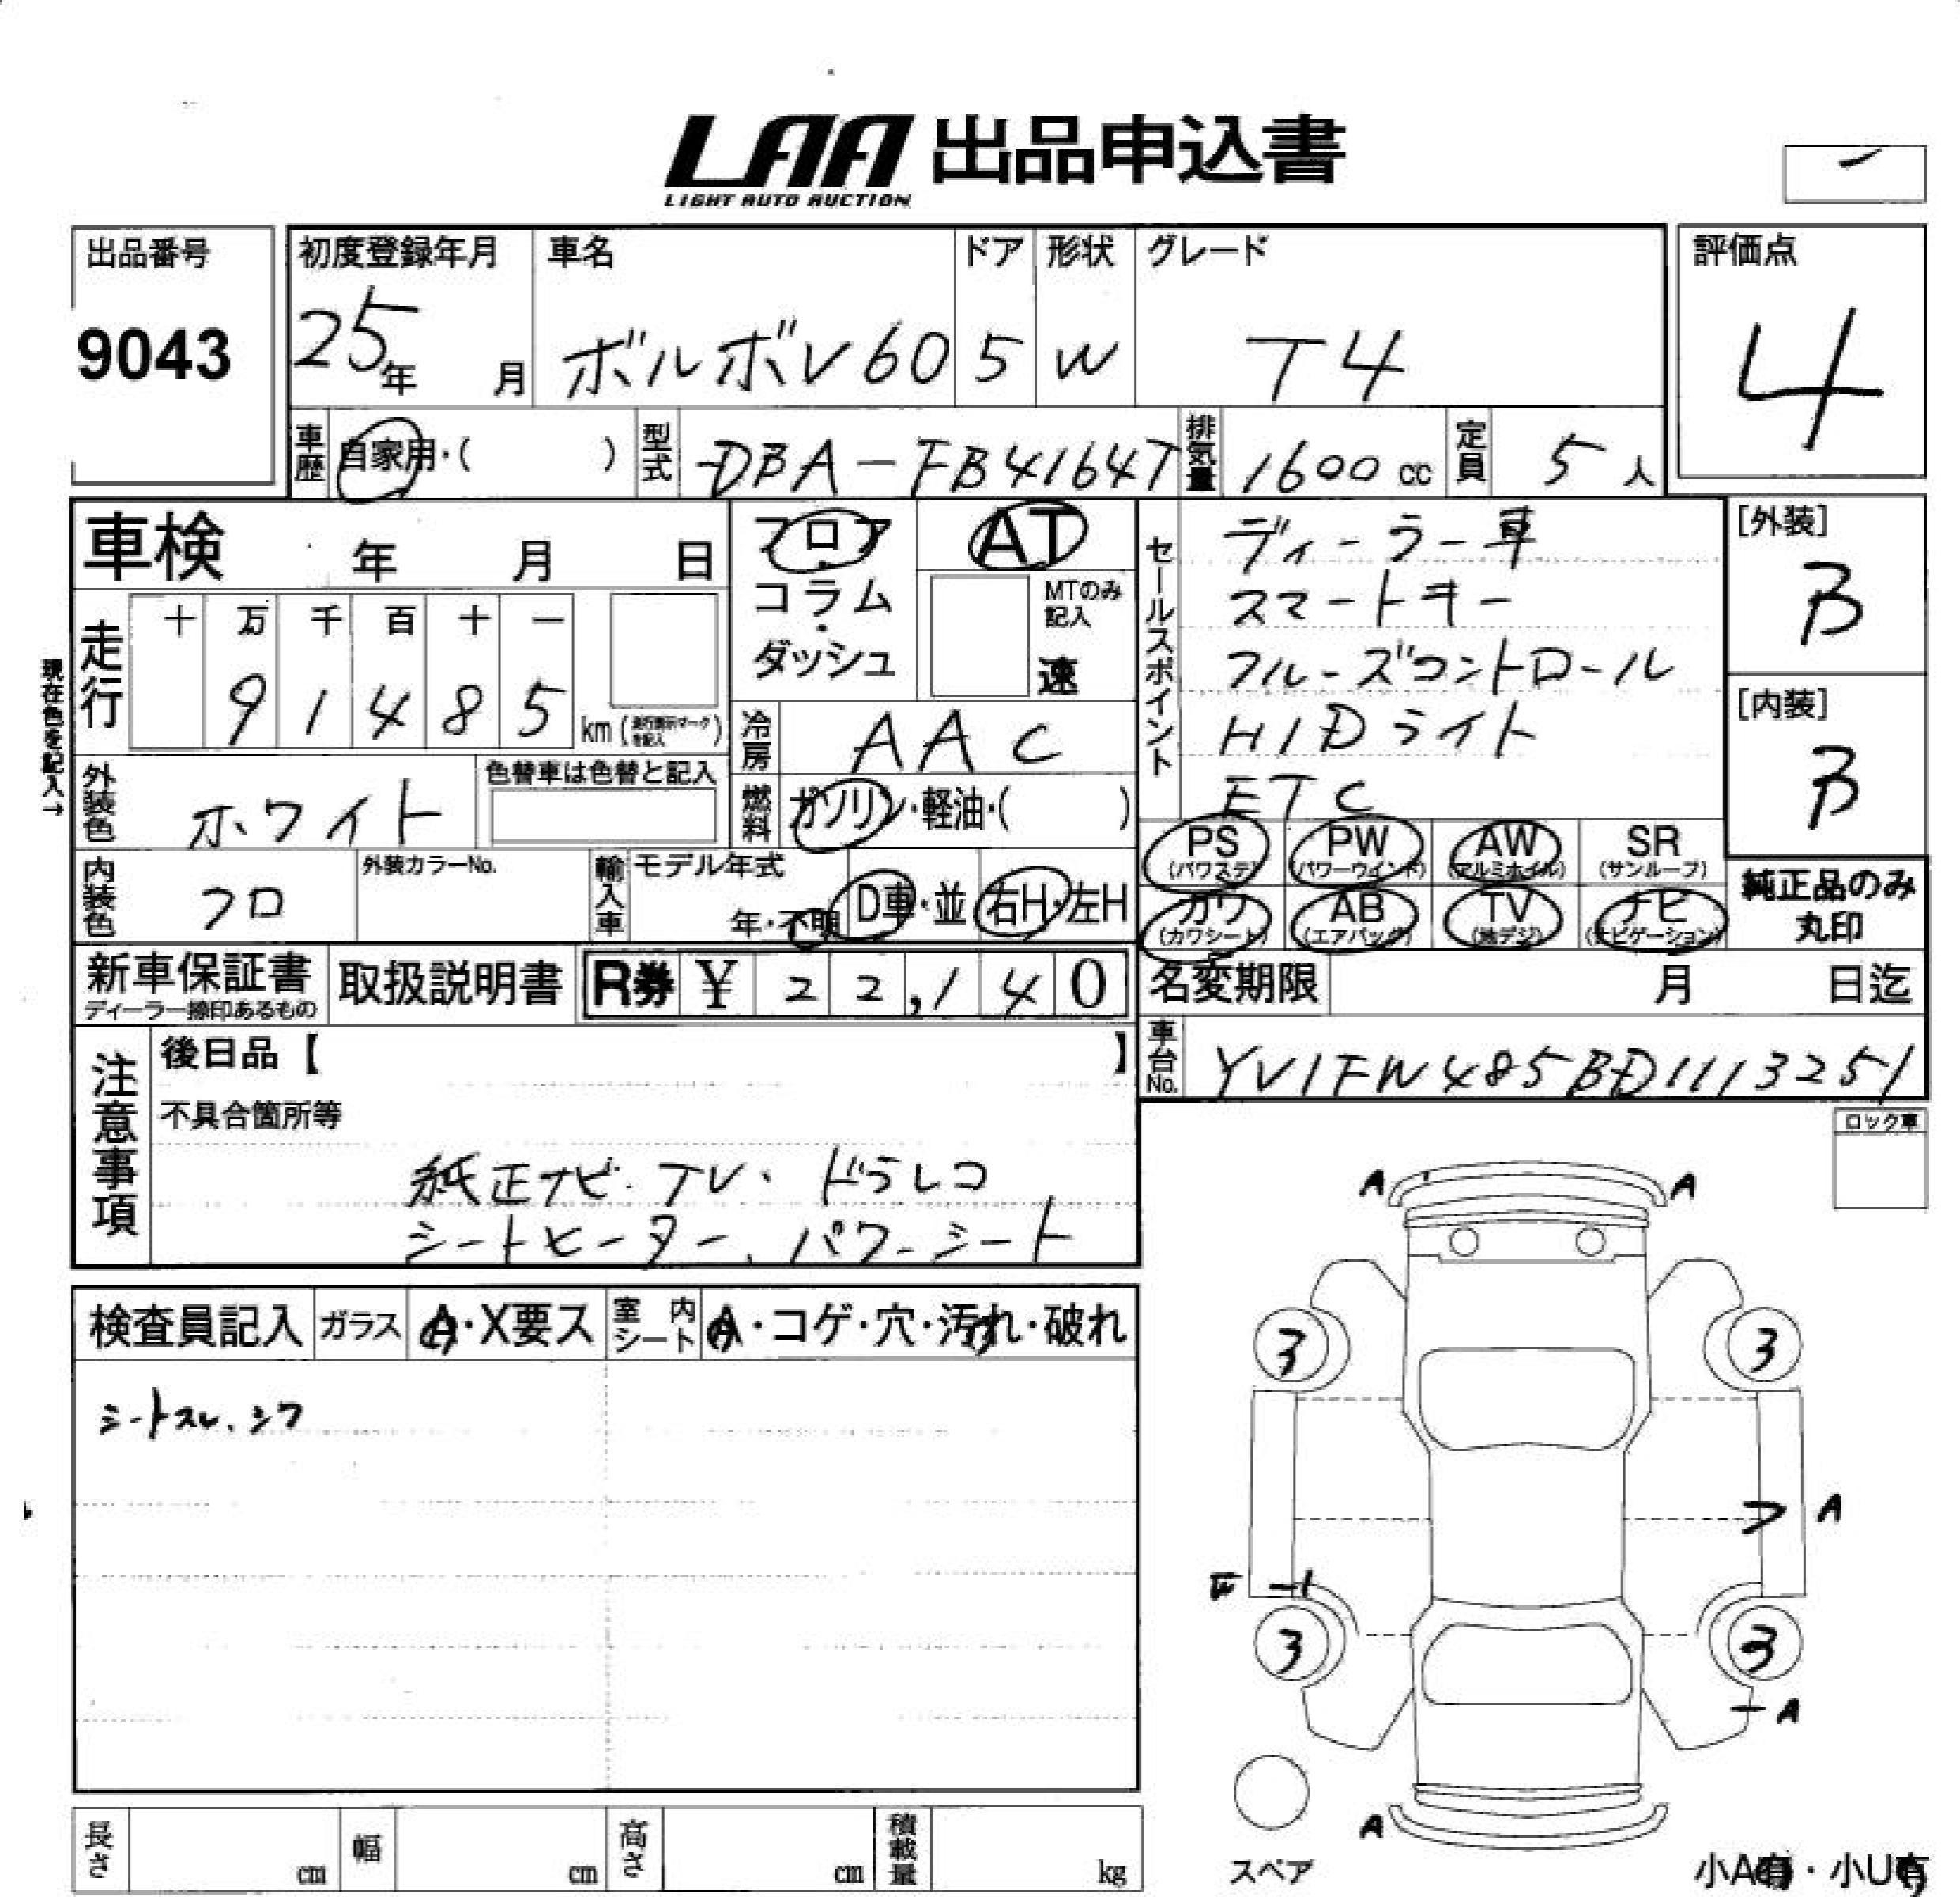 LAA 出品申込書
LIGHT AUTO AUCTION
出品番号
9043
初度登録年月
25年 月
車名
ボルボV60
ドア
5
形状
W
グレード
T4
評価点
4
車歴 自家用・( )
型式 DBA-FB4164T
排気量 1600cc
定員 5人
車検 年 月 日
フロア
コラム
・
ダッシュ
AT
MTのみ
記入
速
現在色を記入→
走行
十 万 千 百 十 一
9 1 4 8 5 km (走行表示マークを記入)
冷房 AAC
燃料 ガソリン・軽油・( )
外装色 ホワイト
色替車は色替と記入
内装色 クロ
外装カラーNo.
輸入車 モデル年式
年・不明
D車・並
右H・左H
セールスポイント
ディーラー車
スマートキー
クルーズコントロール
HIDライト
ETC
[外装]
B
[内装]
B
PS
(パワステ)
PW
(パワーウインド)
AW
(アルミホイル)
SR
(サンルーフ)
カワ
(カワシート)
AB
(エアバッグ)
TV
(地デジ)
ナビ
(ナビゲーション)
純正品のみ
丸印
新車保証書
ディーラー捺印あるもの
取扱説明書
R券 ¥ 22,140
名変期限 月 日迄
車台No. YV1FW485BD1113251
注意事項
後日品【 】
不具合箇所等
純正ナビ・TV・ドラレコ
シートヒーター、パワーシート
ロック車
検査員記入
ガラス A・X要ス
室内シート A・コゲ・穴・汚れ・破れ
シートスレ、シワ
A A
3 3
A
3 3
A
A
スペア
小A有・小U有
長さ cm
幅 cm
高さ cm
積載量 kg